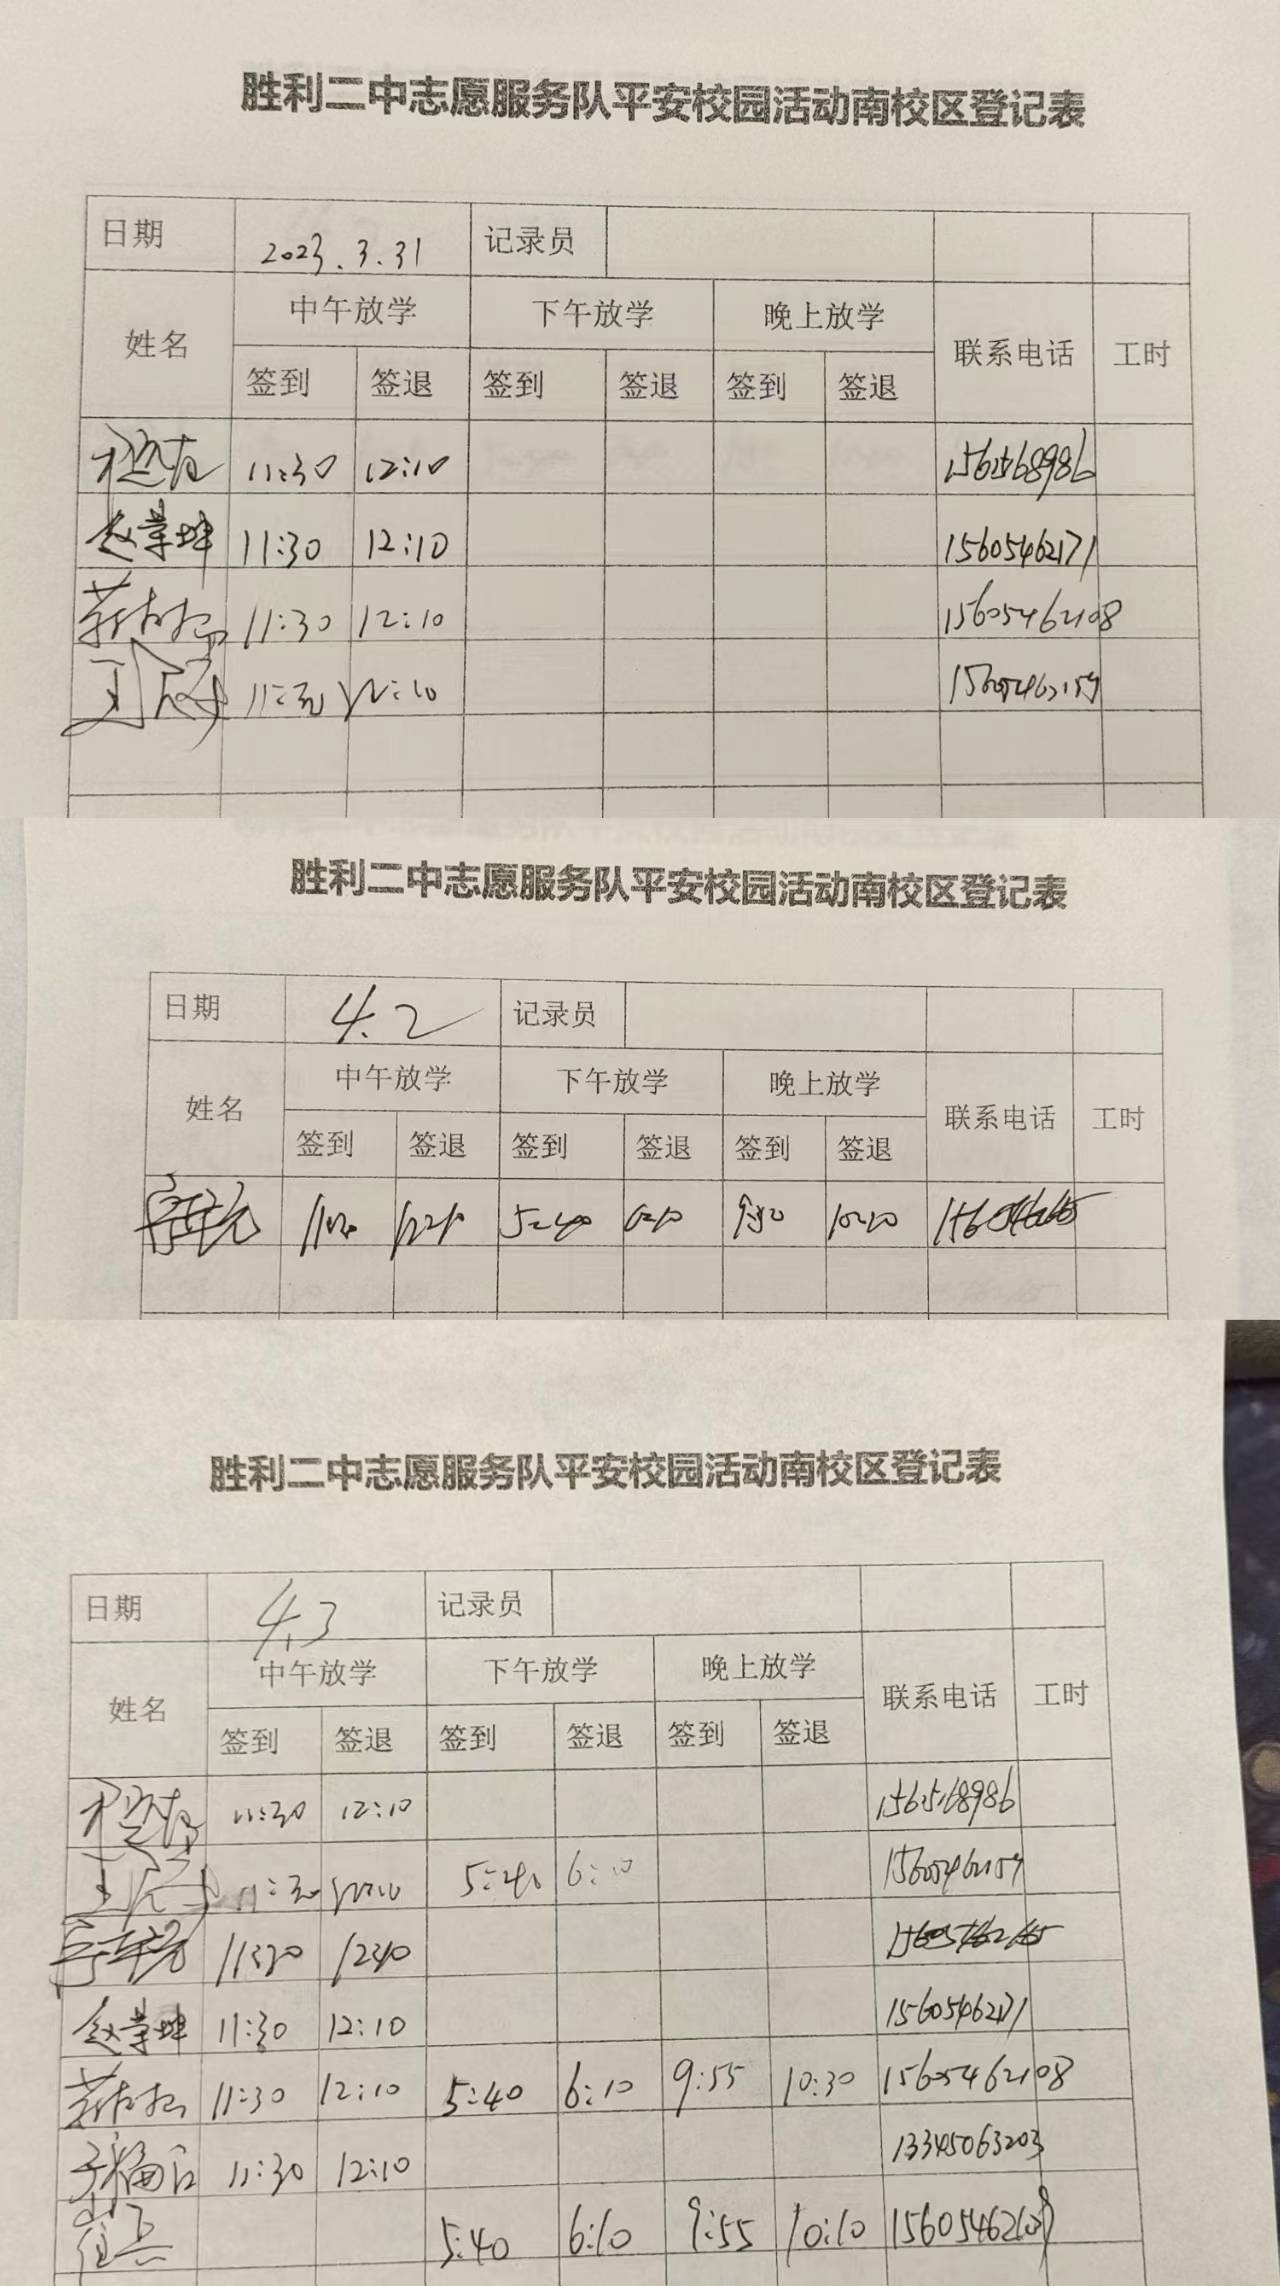 胜利二中志愿服务队平安校园活动南校区登记表
日期 2023.3.31 记录员
姓名 中午放学 下午放学 晚上放学 联系电话 工时
签到 签退 签到 签退 签到 签退
11:30 12:10
赵荣坤 11:30 12:10 15605462171
11:30 12:10 15605462108
11:30 12:10
胜利二中志愿服务队平安校园活动南校区登记表
日期 4.2 记录员
姓名 中午放学 下午放学 晚上放学 联系电话 工时
签到 签退 签到 签退 签到 签退
5:40
胜利二中志愿服务队平安校园活动南校区登记表
日期 4.3 记录员
姓名 中午放学 下午放学 晚上放学 联系电话 工时
签到 签退 签到 签退 签到 签退
11:30 12:10
11:30 12:10 5:40 6:10
赵荣坤 11:30 12:10 15605462171
11:30 12:10 5:40 6:10 9:55 10:30 15605462108
11:30 12:10 13345063203
崔兵 5:40 6:10 9:55 10:10